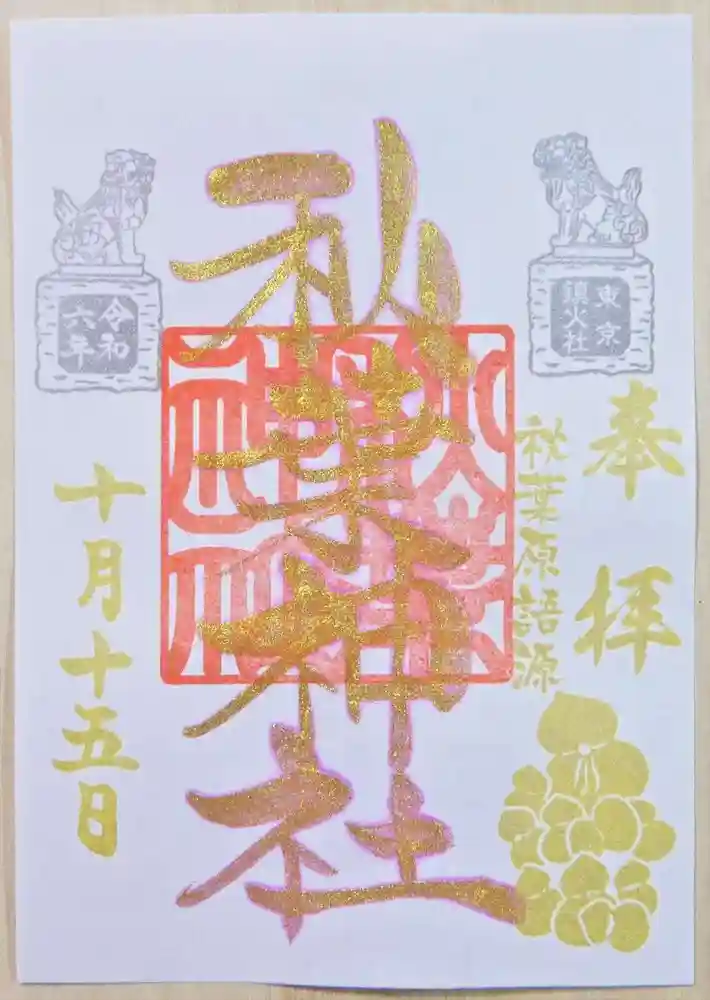 東京
鎮火社
奉拝
秋葉原語源
秋葉神社
令和
六年
十月十五日